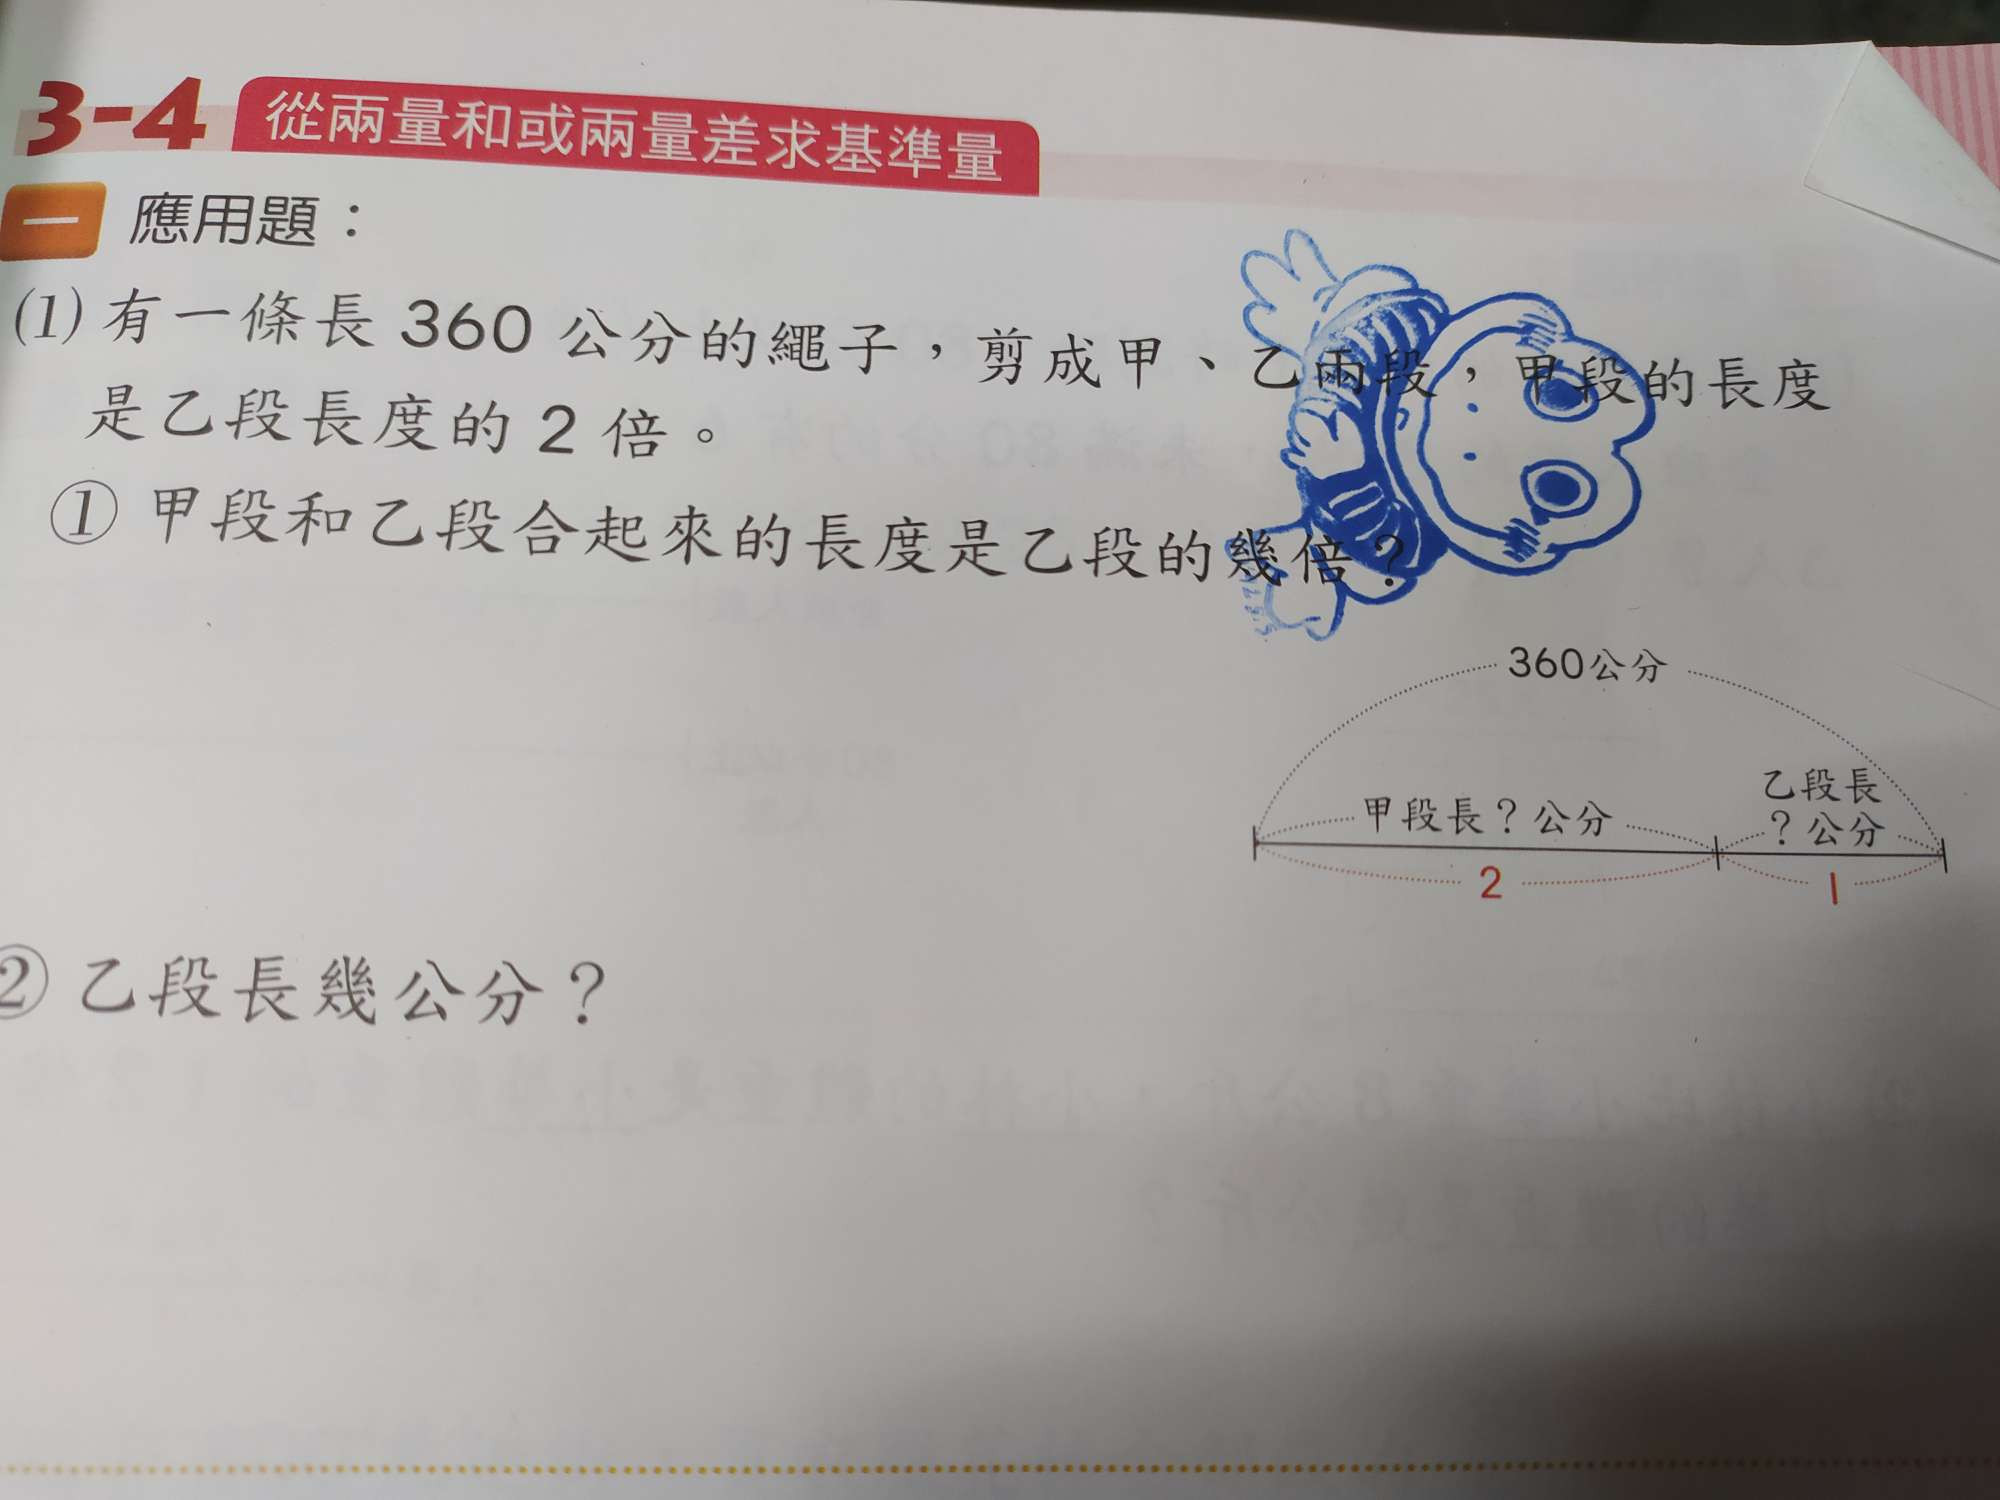 3-4 從兩量和或兩量差求基準量
一 應用題：
(1) 有一條長 360 公分的繩子，剪成甲、乙兩段，甲段的長度
是乙段長度的 2 倍。
① 甲段和乙段合起來的長度是乙段的幾倍？
360公分
甲段長？公分
乙段長
？公分
2
1
② 乙段長幾公分？